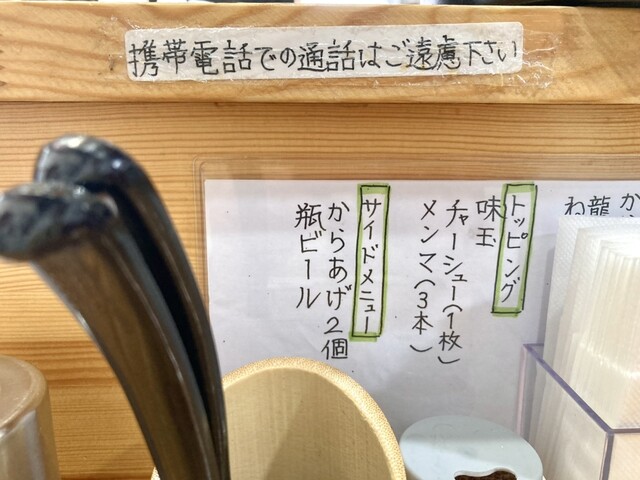 携帯電話での通話はご遠慮下さい
トッピング
味玉
チャーシュー(1枚)
メンマ(3本)
サイドメニュー
からあげ2個
瓶ビール